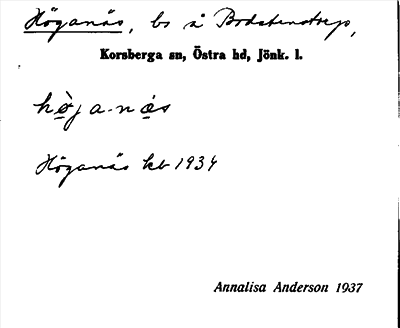 Höganäs, bs å Bodstenstorp,
Korsberga sn, Östra hd, Jönk. l.
hø̀ja-nás
Höganäs kb 1934
Annalisa Anderson 1937